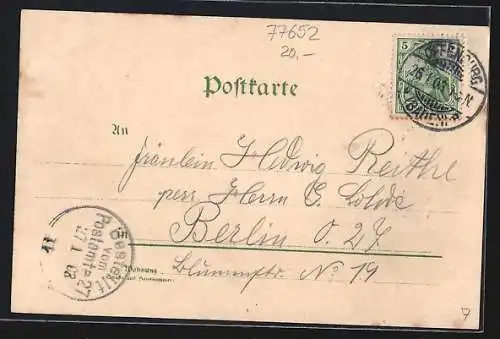 77652
20,-
5
Postkarte
An
Fräulein Hedwig Reithe
per Herrn G. Lohde
in Berlin O. 27
Wohnung
Blumenstr. No 19
Bestellt
vom
Postamte 27
27 1 03
7